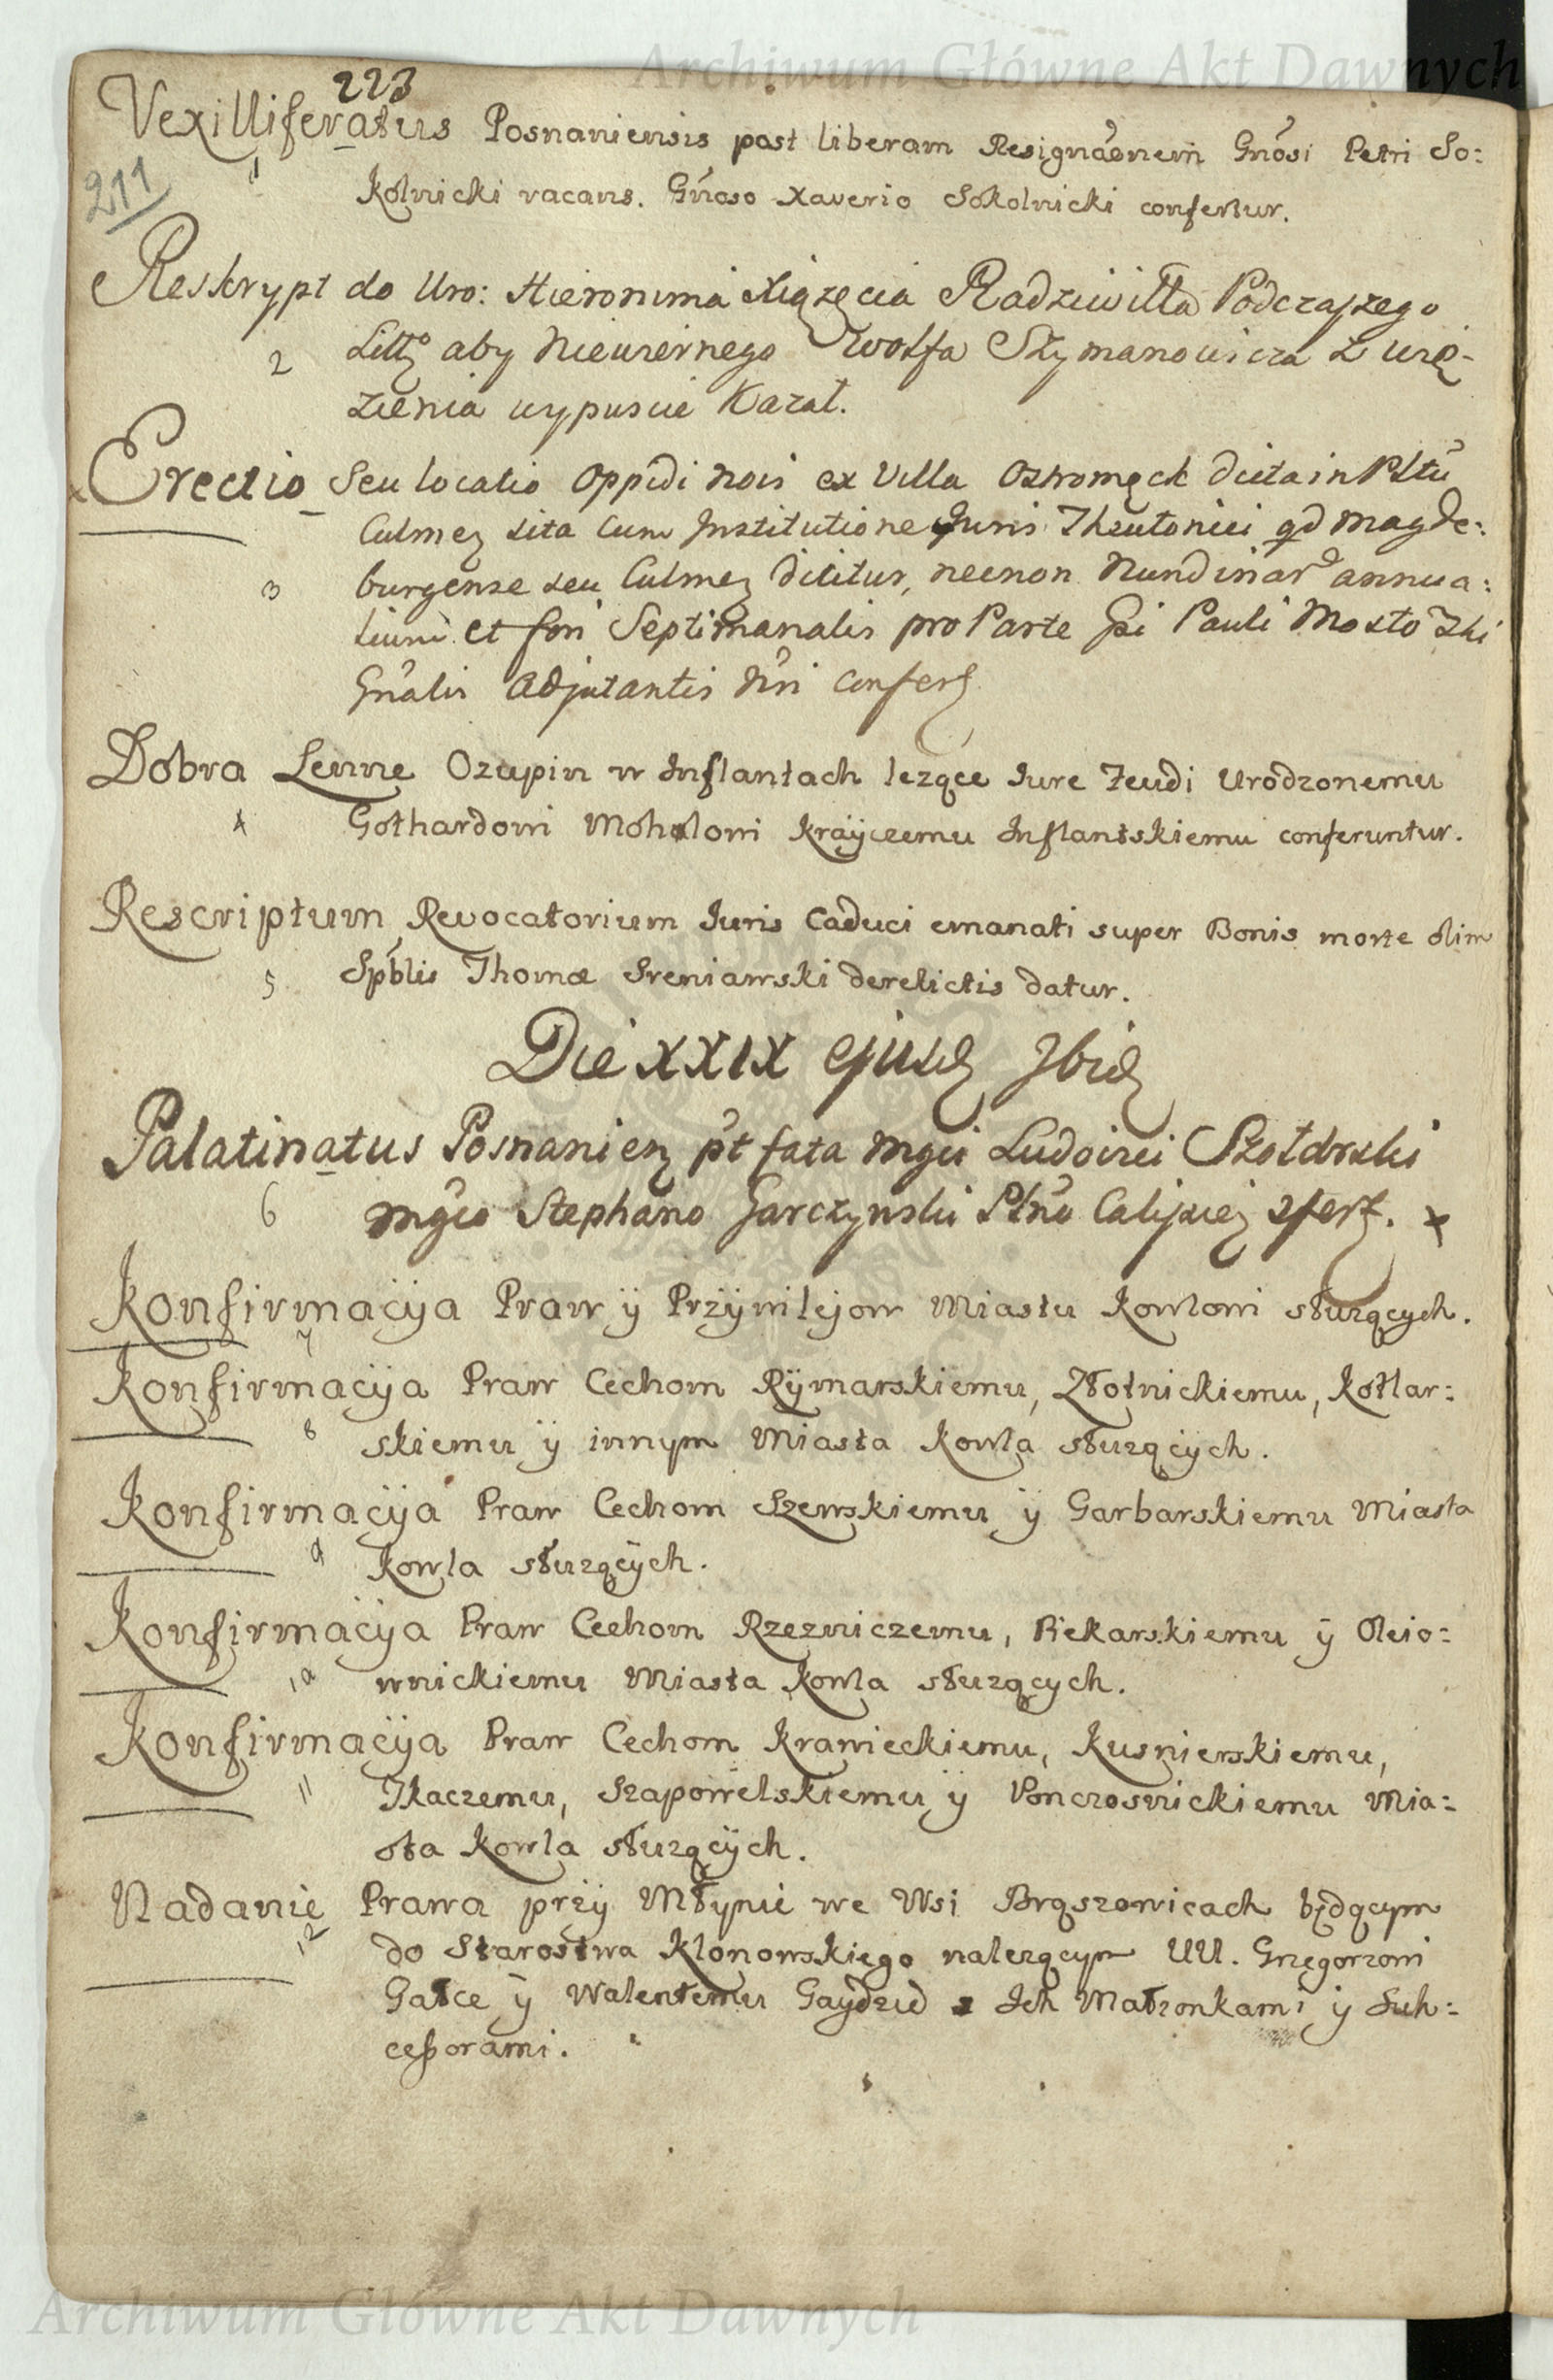 Archiwum Główne Akt Dawnych
223
Vexilliferatus Posnaniensis post liberam Resignãonem Gnõsi Petri So:
211
1
kolnicki vacans. Gnõso Xaverio Sokolnicki confertur.
Reskrypt do Uro: Hieronima Xiązęcia Radziwiłła Podczaszego
2
Litt° aby Niewiernego Wolfa Szymanowicza z wię-
zienia wypuscić Kazał.
x Erectio seu locatio Oppidi Novi ex Villa Ostromęck dicta in Pltũ
Culmeƶ sita cum Institutione Juris Theutonici qd Magde:
3
burgense seu Culmeƶ dicitur, necnon Nundinar annua:
lium et fori Septimanalis pro Parte Gi Pauli Mosto
Gnãlis Adjutantis Nri Confer
Dobra Lenne Ozupin w Inflantach lezące Jure feudi Urodzonemu
4
Gothardowi Moholowi Krayczemu Inflantskiemu conferuntur.
Rescriptum Revocatorium Juris Caduci emanati super Bonis morte olim
5
Spblis Thomæ Sreniawski derelictis datur.
Die XXIX ejusd Ibid
Palatinatus Posnanieƶ pt fata Mgci Ludovici Szołdrski
6
Mgco Stephano Garczynski Pltno Calisszieƶ 2fert. x
Konfirmacÿa Praw ÿ Przÿwilejow Miastu Kowlowi słuzących.
7
Konfirmacÿa Praw Cechom Rÿmarskiemu, Złotnickiemu, Kotlar:
8
skiemu ÿ innym Miasta Kowla słuzącÿch.
Konfirmacÿa Praw Cechom Szewskiemu ÿ Garbarskiemu Miasta
9
Kowla słuzącÿch.
Konfirmacÿa Praw Cechom Rzezniczemu, Piekarskiemu ÿ Oleio:
10
wnickiemu Miasta Kowla słuzących.
Konfirmacÿa Praw Cechom Krawieckiemu, Kusnierskiemu,
11
Tkaczemu, Szapowelskiemu ÿ Ponczosnickiemu Mia:
sta Kowla słuzącÿch.
Nadanie Prawa przÿ Młynie we Wsi Brąszowicach będącym
12
do Starostwa Klonowskiego nalezącym UU. Grzegorzowi
Gałce ÿ Walentemu Gaydzie z Ich Małzonkami ÿ Suk:
ceßorami.
Archiwum Główne Akt Dawnych